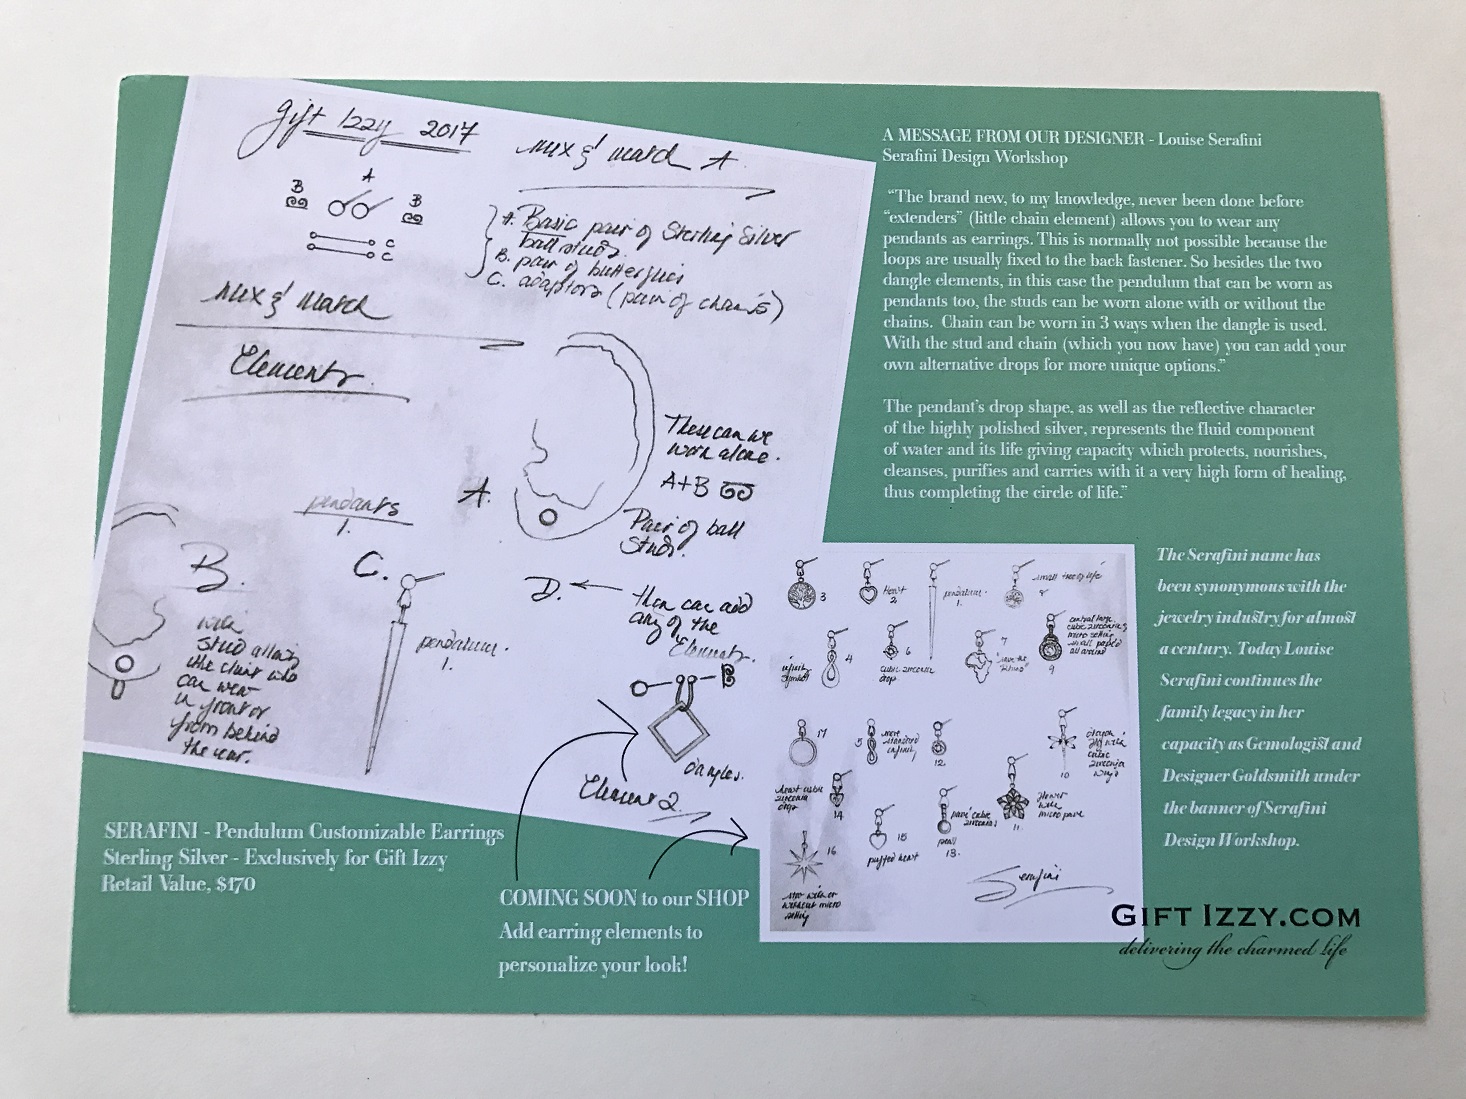 Gift Izzy 2017
Mix & Match A
B
A
B
C
C
A. Basic pair of Sterling Silver
ball studs.
B. pair of butterflies
C. adaptors (pair of chains)
Mix & Match
Elements
These can be
worn alone.
A+B
A.
Pair of ball
Studs.
pendants
1.
B.
with
stud allows
the client who
can wear
in front or
from behind
the ear.
C.
pendulum.
1.
D.
then can add
any of the
Elements.
dangles.
Element 2
SERAFINI - Pendulum Customizable Earrings
Sterling Silver - Exclusively for Gift Izzy
Retail Value, $170
COMING SOON to our SHOP
Add earring elements to
personalize your look!
A MESSAGE FROM OUR DESIGNER - Louise Serafini
Serafini Design Workshop
“The brand new, to my knowledge, never been done before
“extenders” (little chain element) allows you to wear any
pendants as earrings. This is normally not possible because the
loops are usually fixed to the back fastener. So besides the two
dangle elements, in this case the pendulum that can be worn as
pendants too, the studs can be worn alone with or without the
chains. Chain can be worn in 3 ways when the dangle is used.
With the stud and chain (which you now have) you can add your
own alternative drops for more unique options.”
The pendant’s drop shape, as well as the reflective character
of the highly polished silver, represents the fluid component
of water and its life giving capacity which protects, nourishes,
cleanses, purifies and carries with it a very high form of healing,
thus completing the circle of life.”
3
Heart
2
pendulum
1.
small tree of life
8
infinity
symbol
4
6
cubic zirconia
drop
7
9
17
5
more
standard
infinity
12
10
dragon
fly with
cubic
zirconia
wings
heart cubic
zirconia
drop
14
15
puffed heart
pave cubic
zirconias
pearl
13.
flower
with
micro pave
11.
16
star with or
without micro
setting
Serafini
The Serafini name has
been synonymous with the
jewelry industry for almost
a century. Today Louise
Serafini continues the
family legacy in her
capacity as Gemologist and
Designer Goldsmith under
the banner of Serafini
Design Workshop.
GIFT IZZY.COM
delivering the charmed life